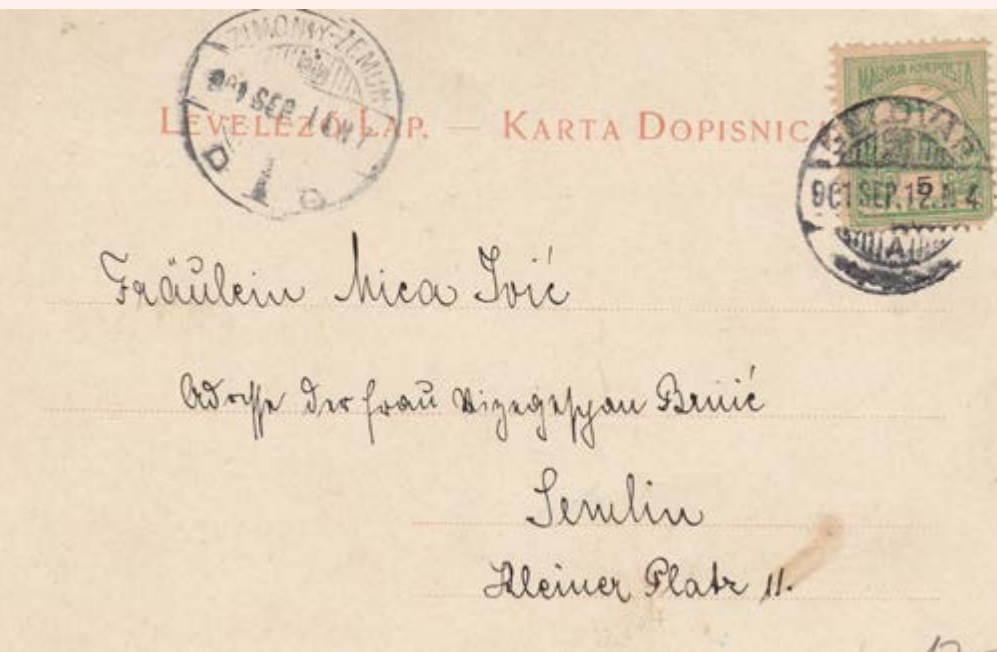 ZIMONY-ZEMUN
901 SEP.
LEVELEZŐ LAP. — KARTA DOPISNICA
MAGYAR KIR. POSTA
5
901 SEP. 12.
A
Fräulein Mica Ivić
Adresse der Frau Vizegespan Brnić
Semlin
Kleiner Platz 11.